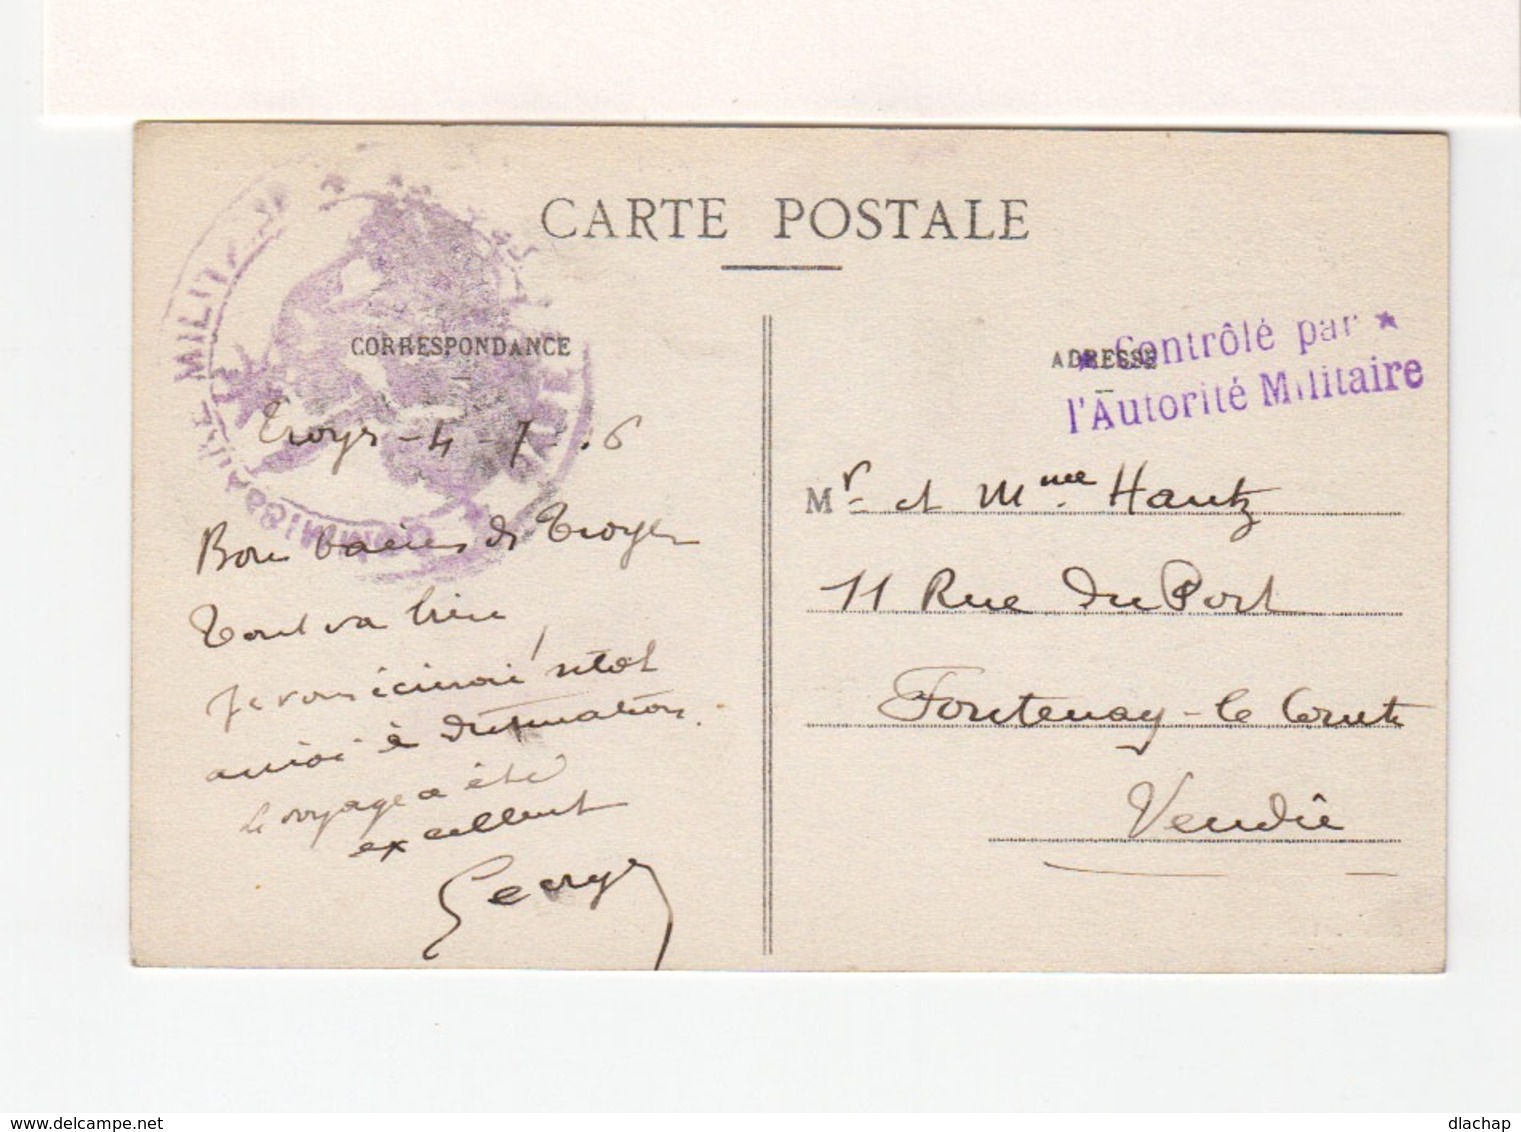 CARTE POSTALE
CORRESPONDANCE
ADRESSE
* Contrôlé par *
l'Autorité Militaire
COMMISSAIRE MILITAIRE
GARE
Troyes - 4 - 7 - 16
Bons baisers de Troyes
Tout va bien,
Je vous écrirai sitôt
arrivé à destination.
Le voyage a été
excellent
Georges
Mr et Mme Hautz
11 Rue du Port
Fontenay-le Comte
Vendée
delcampe.net
dlachap